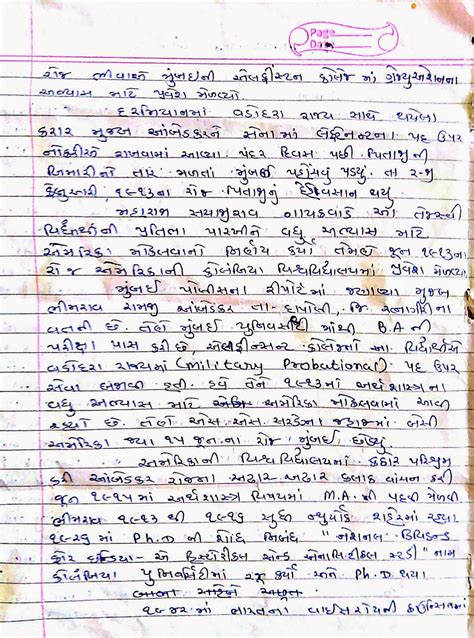 Page
Date
રોજ ભીવાએ મુંબઇની એલફીસ્ટન કોલેજ માં ગ્રેજ્યુએશનના
અભ્યાસ માટે પ્રવેશ મેળવ્યો.
દરમિયાનમાં વડોદરા રાજ્ય સાથે થયેલા
કરાર મુજબ આંબેડકરને સેનામાં લેફ્ટનન્ટના પદ ઉપર
નોકરીએ રાખવામાં આવ્યા. પંદર દિવસ પછી પિતાજીની
બિમારીનો તાર મળતાં મુંબઈ પહોંચવું પડ્યું. તા ૨-જી
ફેબ્રુઆરી, ૧૯૧૩ના રોજ પિતાજીનું દેહાવસાન થયું
મહારાજા સયાજીરાવ ગાયકવાડે આ તેજસ્વી
વિદ્યાર્થીની પ્રતિભા પારખીને વધુ અભ્યાસ માટે
અમેરિકા મોકલવાનો નિર્ણય કર્યો તેમણે જૂન ૧૯૧૩ના
રોજ અમેરિકાની કોલંબિયા વિશ્વવિદ્યાલયમાં પ્રવેશ મેળવ્યો
મુંબઈ પોલીસના રીપોર્ટમાં જણાવ્યા મુજબ
ભીમરાવ રામજી આંબેડકર તા-દાપોલી, જિ. રત્નાગીરીના
વતની છે. તેણે મુંબઈ યુનિવર્સિટી માંથી B.A ની
પરીક્ષા પાસ કરી છે, એલફિન્સટન કોલેજનો આ વિદ્યાર્થીએ
વડોદરા રાજ્યમાં (Military Probational) પદ ઉપર
સેવા બજાવી હતી. હવે તેને ૧૯૧૩માં અર્થશાસ્ત્રના
વધુ અભ્યાસ માટે અમેરિકા મોકલવામાં આવી
રહ્યો છે. તેણે એસ.એસ. જહાજમાં બેસી
અમેરિકા જવા ૧૫ જૂનના રોજ મુંબઈ છોડ્યું.
અમેરિકાની વિશ્વવિદ્યાલયમાં કઠોર પરિશ્રમ
કરી આંબેડકર રોજના અઢાર-અઢાર કલાક વાંચન કરી
જૂન ૧૯૧૫માં અર્થશાસ્ત્ર વિષયમાં M.A. ની પદવી મેળવી
ભીમરાવ ૧૯૧૩ થી ૧૯૧૬ સુધી ન્યુયોર્ક શહેરમાં રહ્યા
૧૯૧૬માં Ph.D ની શોધ નિબંધ "નેશનલ ડિવિડન્ડ
ફોર ઇન્ડિયા - એ હિસ્ટોરીકલ એન્ડ એનાલિટીકલ સ્ટડી" નામે
કોલંબિયા યુનિવર્સિટીમાં રજૂ કર્યો અને Ph.D થયા
૧૯૪૨માં ભારતના વાઇસરોયની કાઉન્સિલમાં